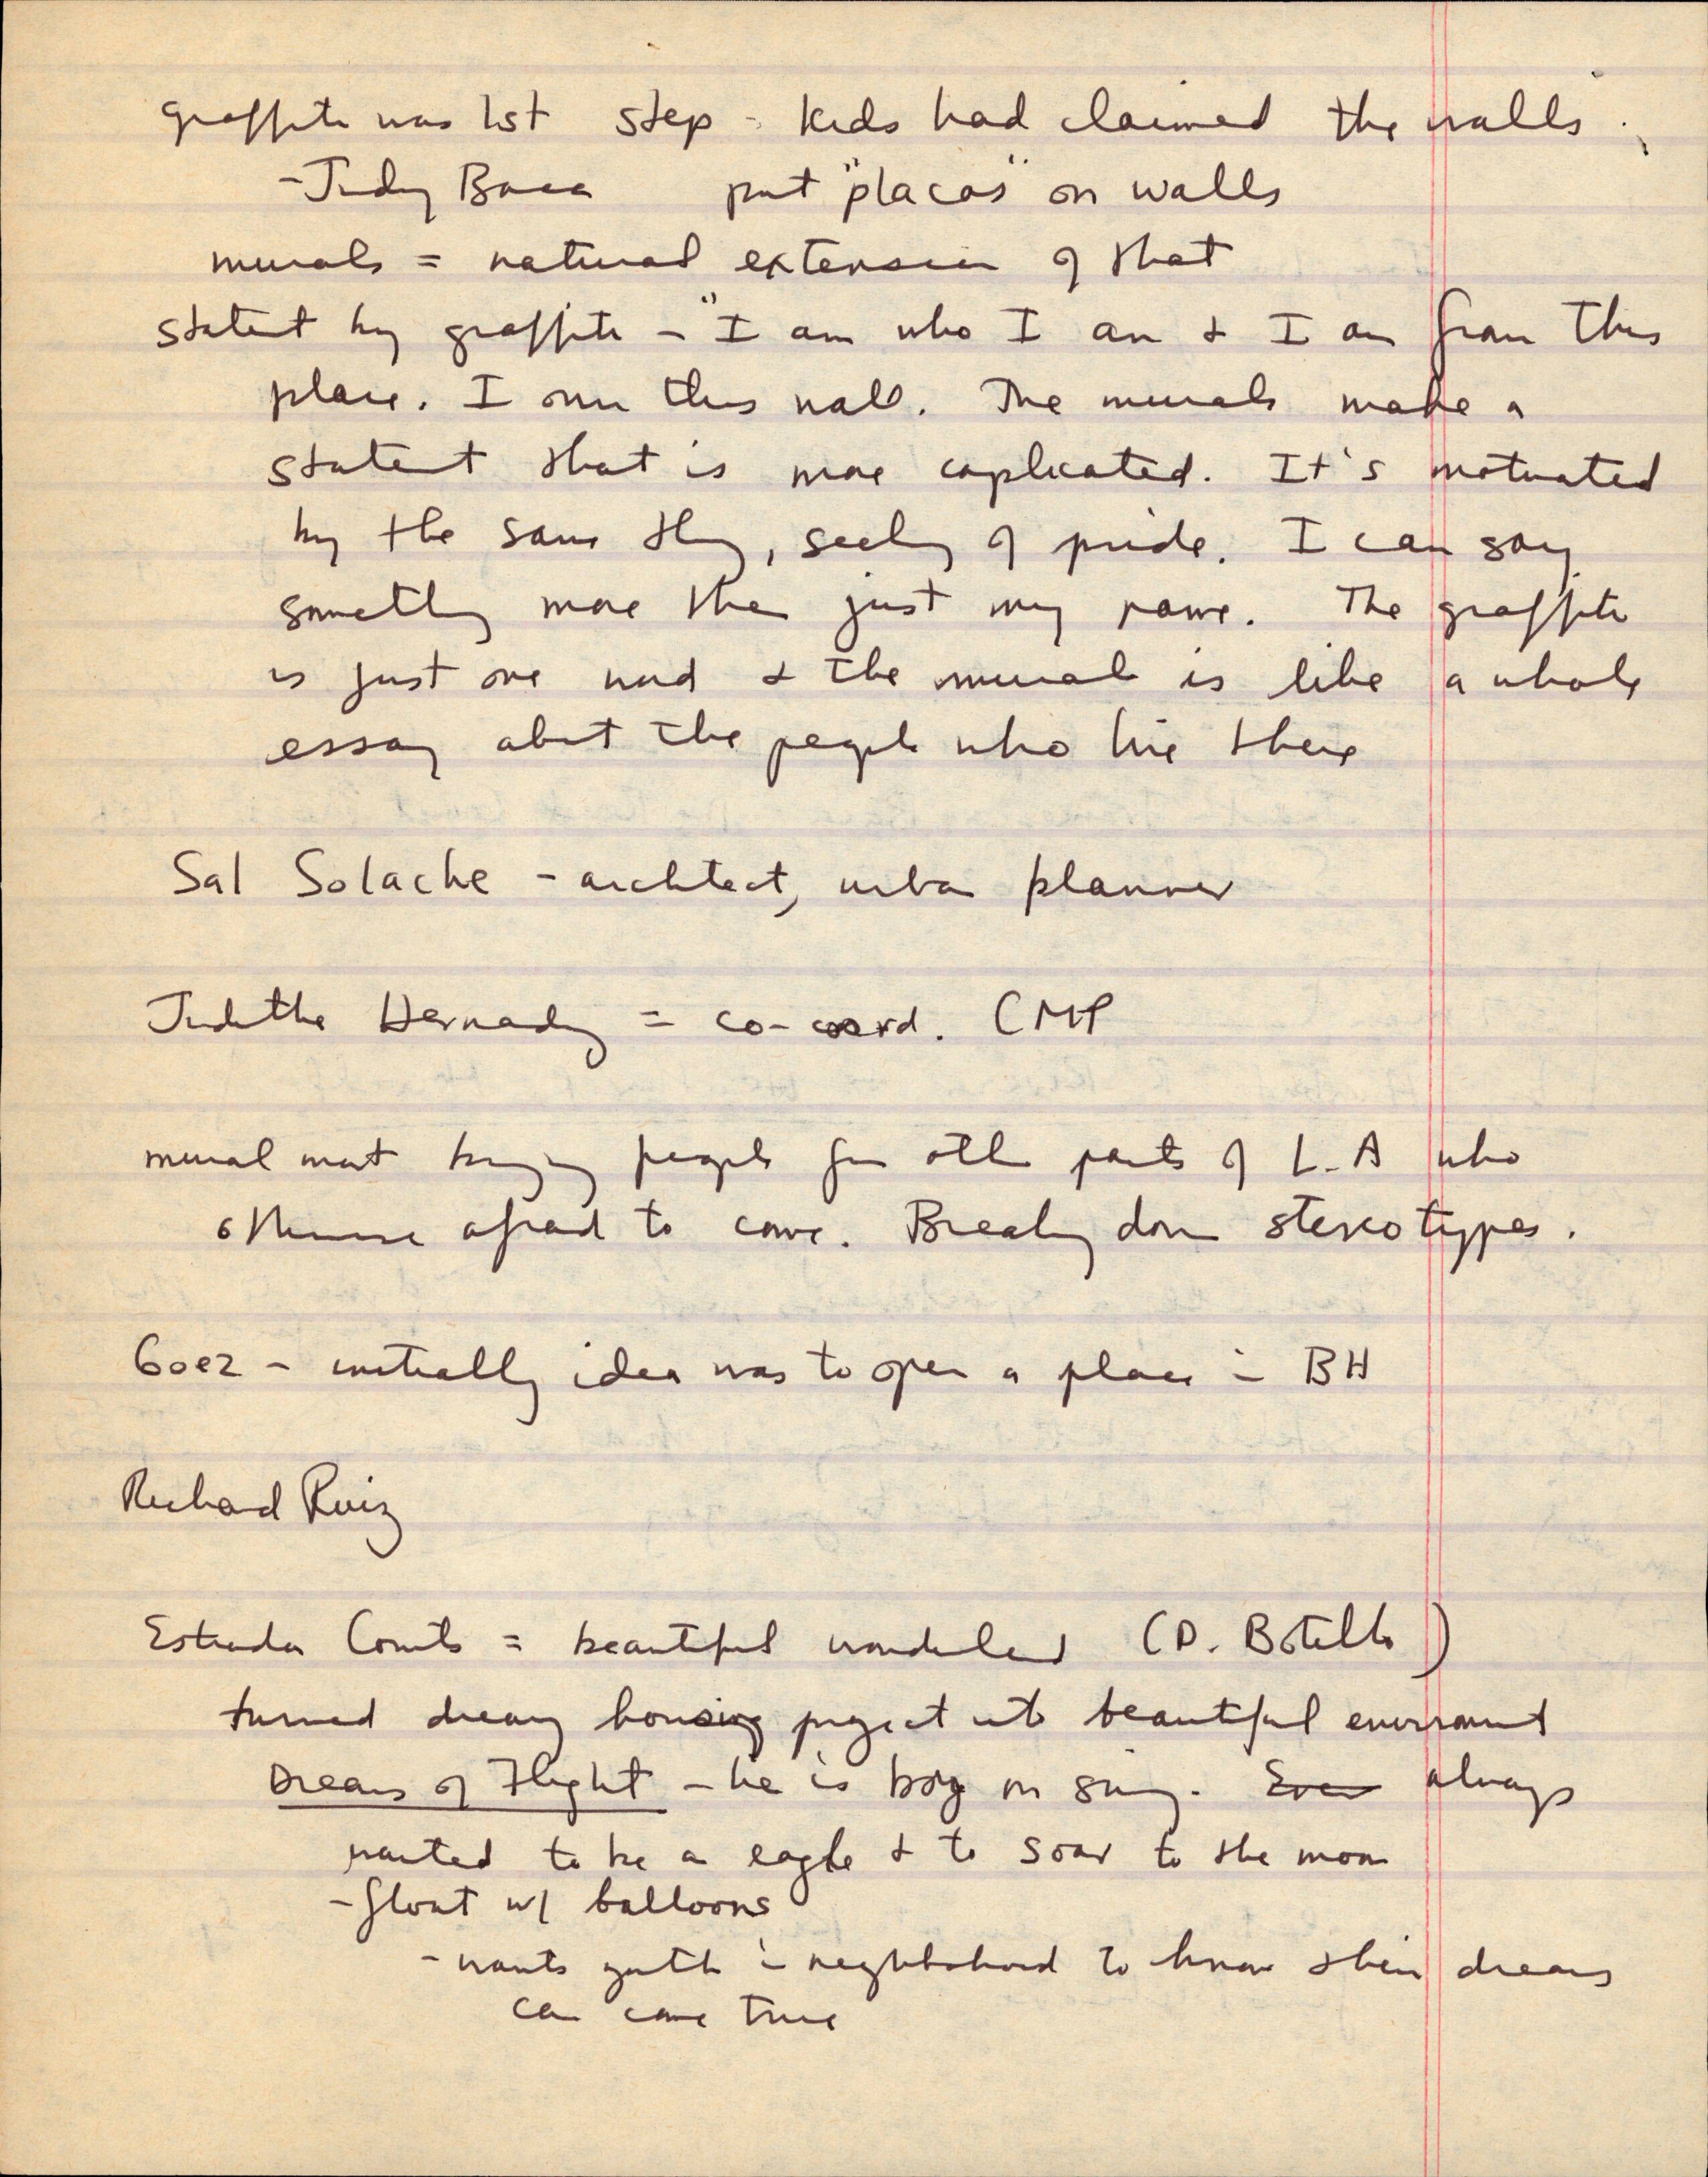 graffiti was 1st step - kids had claimed the walls.
- Judy Baca put "placas" on walls
murals = natural extension of that
statemt by graffiti - "I am who I am & I am from this
place. I own this wall. The murals make a
statemt that is more complicated. It's motivated
by the same thing, seeking of pride. I can say
something more than just my name. The graffiti
is just one word & the mural is like a whole
essay about the people who live there
Sal Solache - architect, urban planner
Judithe Hernandez = co-coord. CMP
mural mvt bringing people from other parts of L.A who
otherwise afraid to come. Breaking down stereotypes.
Goez - initially idea was to open a place in BH
Richard Ruiz
Estrada Courts = beautiful wonderland (D. Botello)
turned dreary housing project into beautiful environmt
Dreams of Flight - he is boy on swing. Ever always
wanted to be a eagle & to soar to the moon
- float w/ balloons
- wants youth in neighborhood to know their dreams
can come true